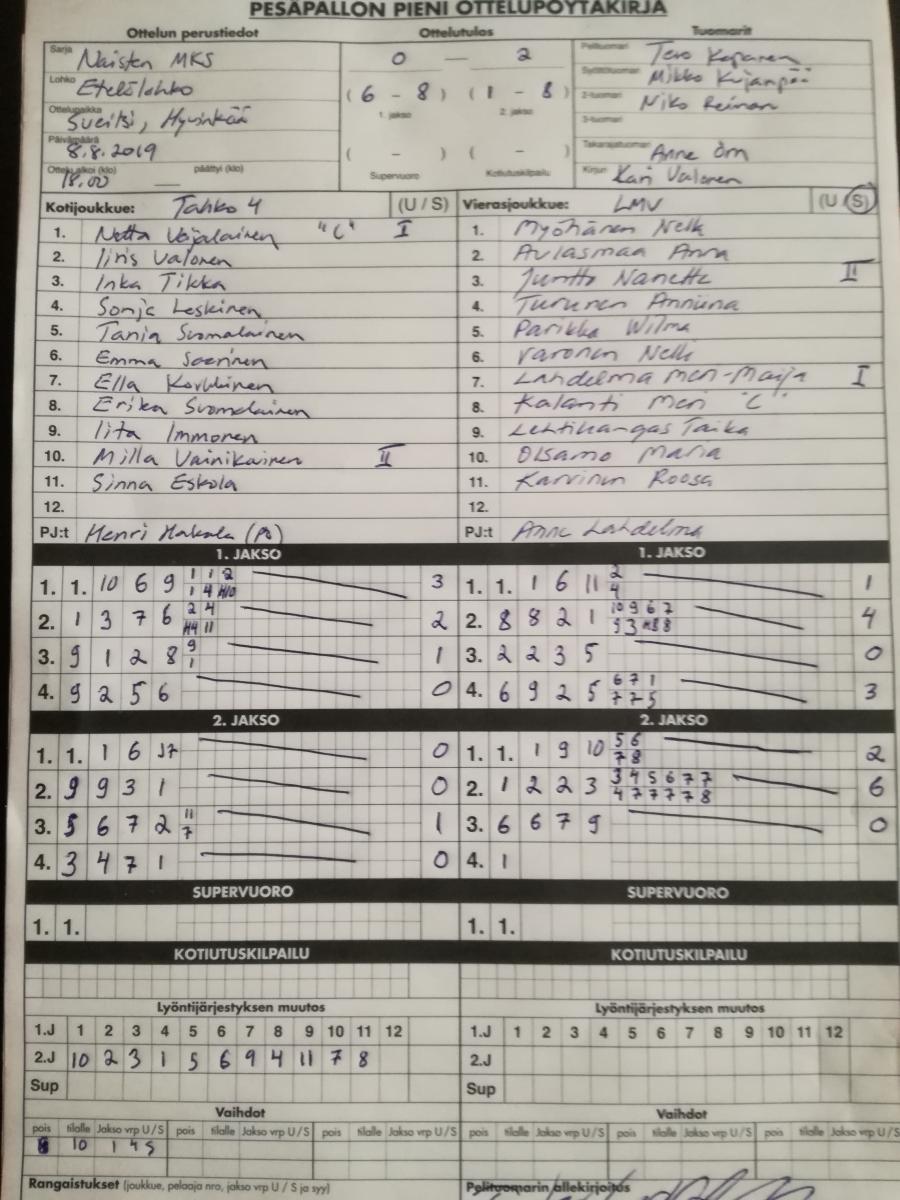 PESÄPALLON PIENI OTTELUPÖYTÄKIRJA
Ottelun perustiedot Ottelutulos Tuomarit
Sarja Naisten MKS 0 — 2 Pelituomari Tero
Lohko Etelälohko (6 – 8) (1 – 8) Syöttötuomari Mikko Kujanpää
1. jakso 2. jakso 2-tuomari Niko Reiman
Ottelupaikka Sveitsi, Hyvinkää 3-tuomari
Päivämäärä 8.8.2019 ( – ) ( – ) Takarajatuomari Anne Örn
Ottelu alkoi (klo) 18.00 päättyi (klo) — Supervuoro Kotiutuskilpailu Kirjuri Kari Valonen
Kotijoukkue: Tahko 4 (U / S) Vierasjoukkue: LMV (U / S)
1. Netta Vojalainen "C" I 1. Myöhänen Nelli
2. Iiris Valonen 2. Aulasmaa Anna
3. Inka Tikka 3. Juntto Nanette II
4. Sonja Leskinen 4. Turunen Anniina
5. Tanja Suomalainen 5. Parikka Wilma
6. Emma Saarinen 6. Varonen Nelli
7. Ella Korhkinen 7. Lahdelma Meri-Maija I
8. Erika Suomalainen 8. Kalanti Meri "C"
9. Iita Immonen 9. Lehtikangas Taika
10. Milla Vainikainen II 10. Olsamo Maria
11. Sinna Eskola 11. Karvinen Roosa
12. 12.
PJ:t Henri Hakala (PJ) PJ:t Anne Lahdelma
1. JAKSO 1. JAKSO
1. 1. 10 6 9 1 1 2 3 1. 1. 1 6 11 2 1
1 4 H10 4
2. 1 3 7 6 2 4 2 2. 8 8 2 1 10 9 6 7 4
H4 11 9 3 H8 8
3. 9 1 2 8 9 1 3. 2 2 3 5 0
1
4. 9 2 5 6 0 4. 6 9 2 5 6 7 1 3
7 7 5
2. JAKSO 2. JAKSO
1. 1. 1 6 J7 0 1. 1. 1 9 10 5 6 2
7 8
2. 9 9 3 1 0 2. 1 2 2 3 3 4 5 6 7 7 6
4 7 7 7 7 8
3. 5 6 7 2 11 1 3. 6 6 7 9 0
7
4. 3 4 7 1 0 4. 1
SUPERVUORO SUPERVUORO
1. 1. 1. 1.
KOTIUTUSKILPAILU KOTIUTUSKILPAILU
Lyöntijärjestyksen muutos Lyöntijärjestyksen muutos
1.J 1 2 3 4 5 6 7 8 9 10 11 12 1.J 1 2 3 4 5 6 7 8 9 10 11 12
2.J 10 2 3 1 5 6 9 4 11 7 8 2.J
Sup Sup
Vaihdot Vaihdot
pois tilalle Jakso vrp U / S pois tilalle Jakso vrp U / S pois tilalle Jakso vrp U/S pois tilalle Jakso vrp U / S pois tilalle Jakso vrp U / S pois tilalle Jakso vrp U/S
8 10 1 4 S
Rangaistukset (joukkue, pelaaja nro, jakso vrp U / S ja syy) Pelituomarin allekirjoitus